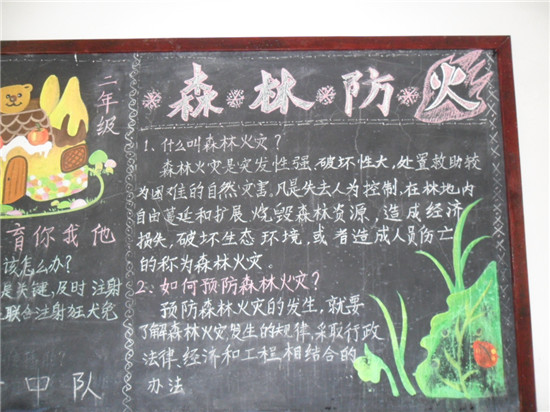 二年级
育你我他
该怎么办?
是关键,及时注射
联合注射狂犬免
中队
森林防火
1、什么叫森林火灾?
森林火灾是突发性强、破坏性大,处置救助较
为困难的自然灾害。凡是失去人为控制,在林地内
自由蔓延和扩展,烧毁森林资源,造成经济
损失,破坏生态环境,或者造成人员伤亡
的称为森林火灾.
2、如何预防森林火灾?
预防森林火灾的发生,就要
了解森林火灾发生的规律,采取行政
法律、经济和工程相结合的
办法